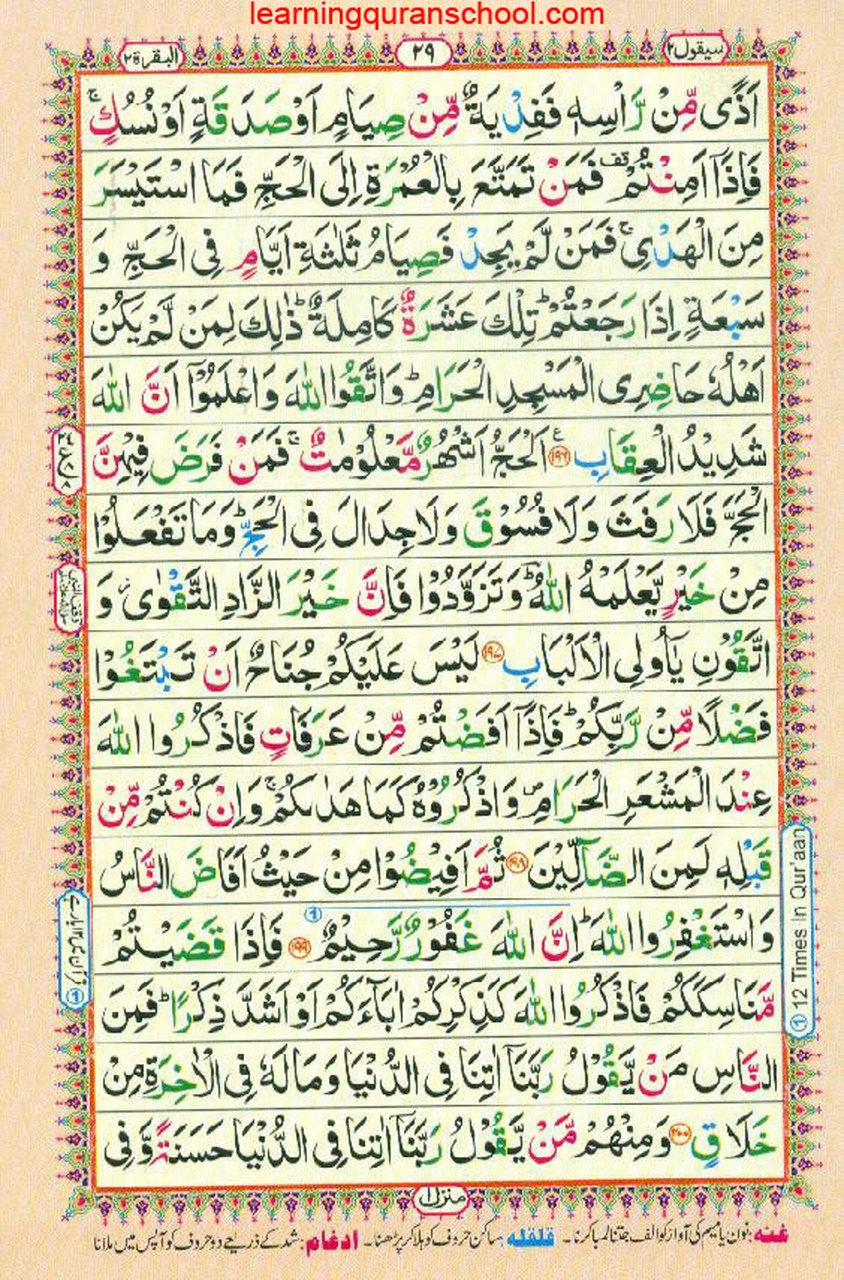 learningquranschool.com
سیقول ٢
٢٩
البقرة ٢
اَذًی مِّنْ رَّاْسِهٖ فَفِدْیَةٌ مِّنْ صِیَامٍ اَوْ صَدَقَةٍ اَوْ نُسُكٍ ۚ
فَاِذَاۤ اَمِنْتُمْ ٚ فَمَنْ تَمَتَّعَ بِالْعُمْرَةِ اِلَی الْحَجِّ فَمَا اسْتَیْسَرَ
مِنَ الْهَدْیِ ۚ فَمَنْ لَّمْ یَجِدْ فَصِیَامُ ثَلٰثَةِ اَیَّامٍ فِی الْحَجِّ وَ
سَبْعَةٍ اِذَا رَجَعْتُمْ ؕ تِلْكَ عَشَرَةٌ كَامِلَةٌ ؕ ذٰلِكَ لِمَنْ لَّمْ یَكُنْ
اَهْلُهٗ حَاضِرِی الْمَسْجِدِ الْحَرَامِ ؕ وَاتَّقُوا اللّٰهَ وَاعْلَمُوْۤا اَنَّ اللّٰهَ
شَدِیْدُ الْعِقَابِ ﴿۱۹۶﴾ اَلْحَجُّ اَشْهُرٌ مَّعْلُوْمٰتٌ ۚ فَمَنْ فَرَضَ فِیْهِنَّ
الْحَجَّ فَلَا رَفَثَ وَلَا فُسُوْقَ وَلَا جِدَالَ فِی الْحَجِّ ؕ وَمَا تَفْعَلُوْا
مِنْ خَیْرٍ یَّعْلَمْهُ اللّٰهُ ؕ وَتَزَوَّدُوْا فَاِنَّ خَیْرَ الزَّادِ التَّقْوٰی ؗ وَ
اتَّقُوْنِ یٰۤاُولِی الْاَلْبَابِ ﴿۱۹۷﴾ لَیْسَ عَلَیْكُمْ جُنَاحٌ اَنْ تَبْتَغُوْا
فَضْلًا مِّنْ رَّبِّكُمْ ؕ فَاِذَاۤ اَفَضْتُمْ مِّنْ عَرَفَاتٍ فَاذْكُرُوا اللّٰهَ
عِنْدَ الْمَشْعَرِ الْحَرَامِ ۪ وَاذْكُرُوْهُ كَمَا هَدٰىكُمْ ۚ وَاِنْ كُنْتُمْ مِّنْ
قَبْلِهٖ لَمِنَ الضَّآلِّیْنَ ﴿۱۹۸﴾ ثُمَّ اَفِیْضُوْا مِنْ حَیْثُ اَفَاضَ النَّاسُ
وَاسْتَغْفِرُوا اللّٰهَ ؕ اِنَّ اللّٰهَ غَفُوْرٌ رَّحِیْمٌ ﴿۱۹۹﴾ فَاِذَا قَضَیْتُمْ
مَّنَاسِكَكُمْ فَاذْكُرُوا اللّٰهَ كَذِكْرِكُمْ اٰبَآءَكُمْ اَوْ اَشَدَّ ذِكْرًا ؕ فَمِنَ
النَّاسِ مَنْ یَّقُوْلُ رَبَّنَاۤ اٰتِنَا فِی الدُّنْیَا وَمَا لَهٗ فِی الْاٰخِرَةِ مِنْ
خَلَاقٍ ﴿۲۰۰﴾ وَمِنْهُمْ مَّنْ یَّقُوْلُ رَبَّنَاۤ اٰتِنَا فِی الدُّنْیَا حَسَنَةً وَّفِی
① 12 Times In Qur'aan
منزل ۱
غنه: نون یا میم کی آواز کو الف جتنا لمبا کرنا۔ قلقله: ساکن حروف کو ہلا کر پڑھنا۔ ادغام: شد کے ذریعے دو حروف کو آپس میں ملانا